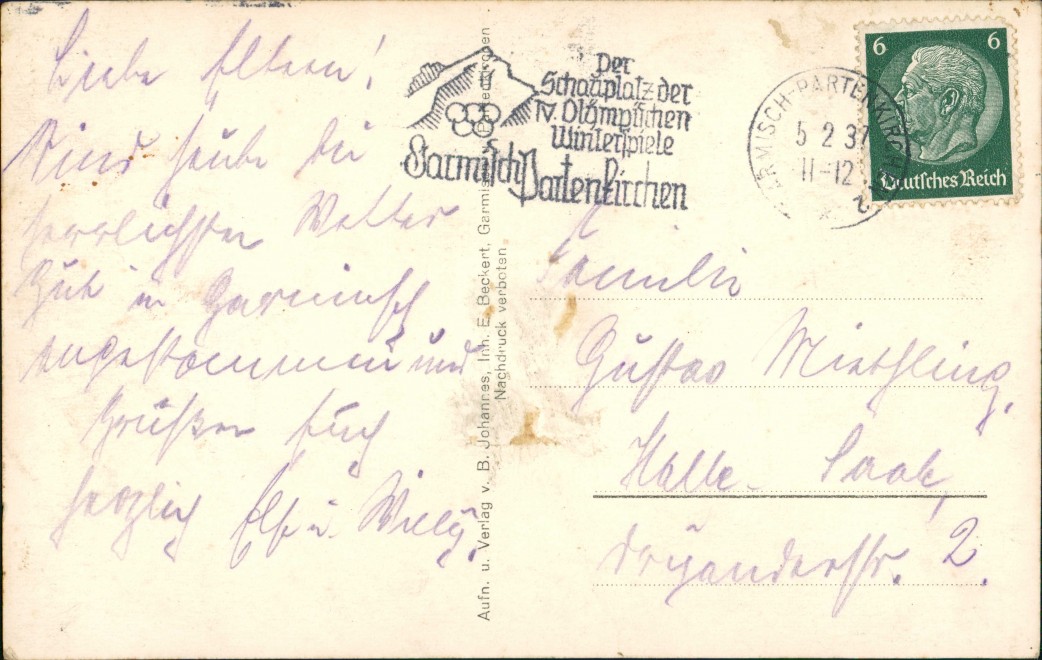 Liebe Eltern!
Sind heute bei
herrlichsten Wetter
Gut in Garmisch
angekommen und
Grüßen Euch
herzlich Else u. Willy.
Aufn. u. Verlag v. B. Johannes, Inh. E. Beckert, Garmisch-Partenkirchen
Nachdruck verboten.
Der
Schauplatz der
IV. Olympischen
Winterspiele
Garmisch Partenkirchen
GARMISCH-PARTENKIRCHEN
5 2 37
11-12
2
6 6
Deutsches Reich
Familie
Gustav Miethling,
Halle. Saale,
Dryanderstr. 2.